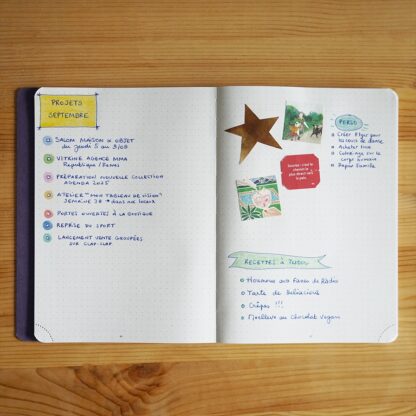 PROJETS
SEPTEMBRE
SALON MAISON & OBJET
du jeudi 5 au 9/09
VITRINE AGENCE MMA
République / Rennes
PRÉPARATION NOUVELLE COLLECTION
AGENDA 2025
ATELIER "MON TABLEAU DE VISION"
SEMAINE 38 → dans nos locaux
PORTES OUVERTES À LA BOUTIQUE
REPRISE DU SPORT
LANCEMENT VENTE GROUPÉES
SUR CLAP CLAP
PERSO
Créer Flyer pour
les cours de danse
Acheter
sur le
corps humain
Papier Famille
Sourire : c'est le
chemin le
plus direct vers
la paix.
RECETTES À TESTER
Houmous aux fanes de Radis
Tarte de
Crêpes !!!
Moelleux au chocolat vegan